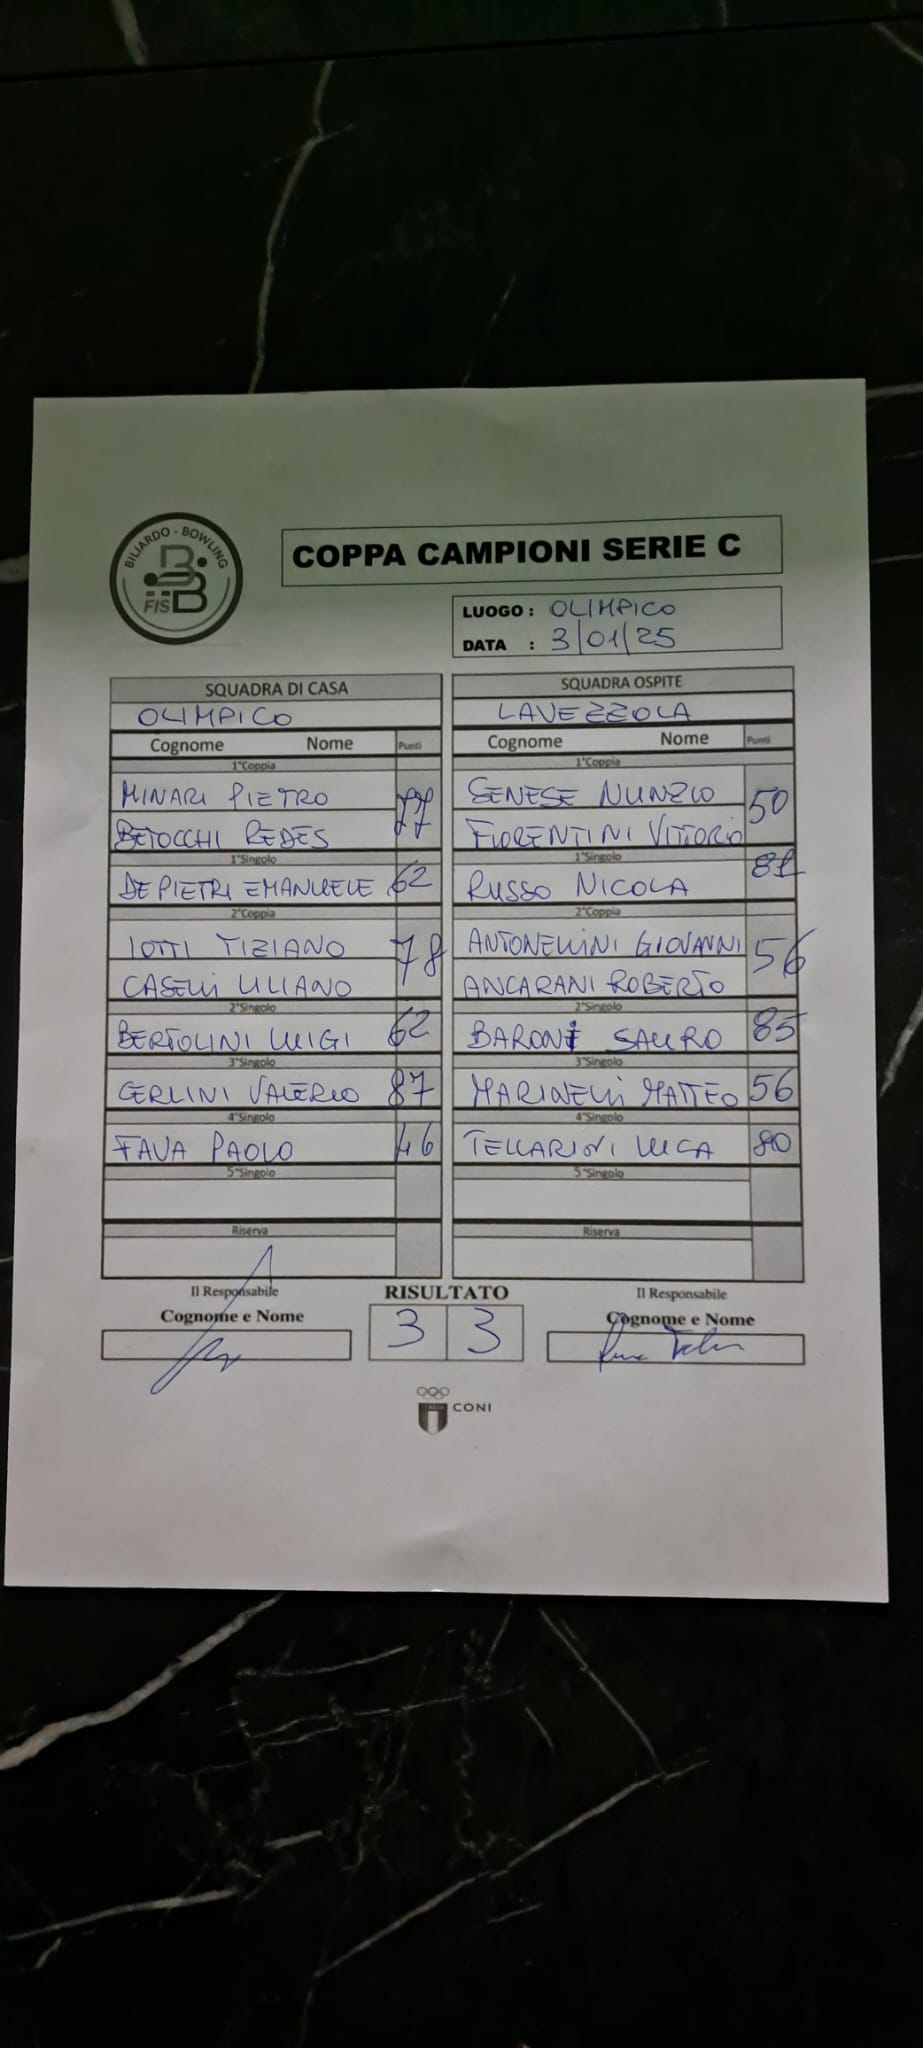 BILIARDO - BOWLING
FISBB
COPPA CAMPIONI SERIE C
LUOGO : OLIMPICO
DATA : 3/01/25
SQUADRA DI CASA
OLIMPICO
Cognome Nome Punti
1°Coppia
MINARI PIETRO
77
BETOCCHI REDES
1°Singolo
DE PIETRI EMANUELE 62
2°Coppia
IOTTI TIZIANO
78
CASELLI ULIANO
2°Singolo
BERTOLINI LUIGI 62
3°Singolo
GERLINI VALERIO 87
4°Singolo
FAVA PAOLO 46
5°Singolo
Riserva
Il Responsabile
Cognome e Nome
SQUADRA OSPITE
LAVEZZOLA
Cognome Nome Punti
1°Coppia
SENESE NUNZIO
50
FIORENTINI VITTORIO
1°Singolo
RUSSO NICOLA 81
2°Coppia
ANTONELLINI GIOVANNI
56
ANCARANI ROBERTO
2°Singolo
BARONI SAURO 85
3°Singolo
MARINELLI MATTEO 56
4°Singolo
TELLARIONI LUCA 80
5°Singolo
Riserva
Il Responsabile
Cognome e Nome
RISULTATO
3 3
ITALIA
CONI